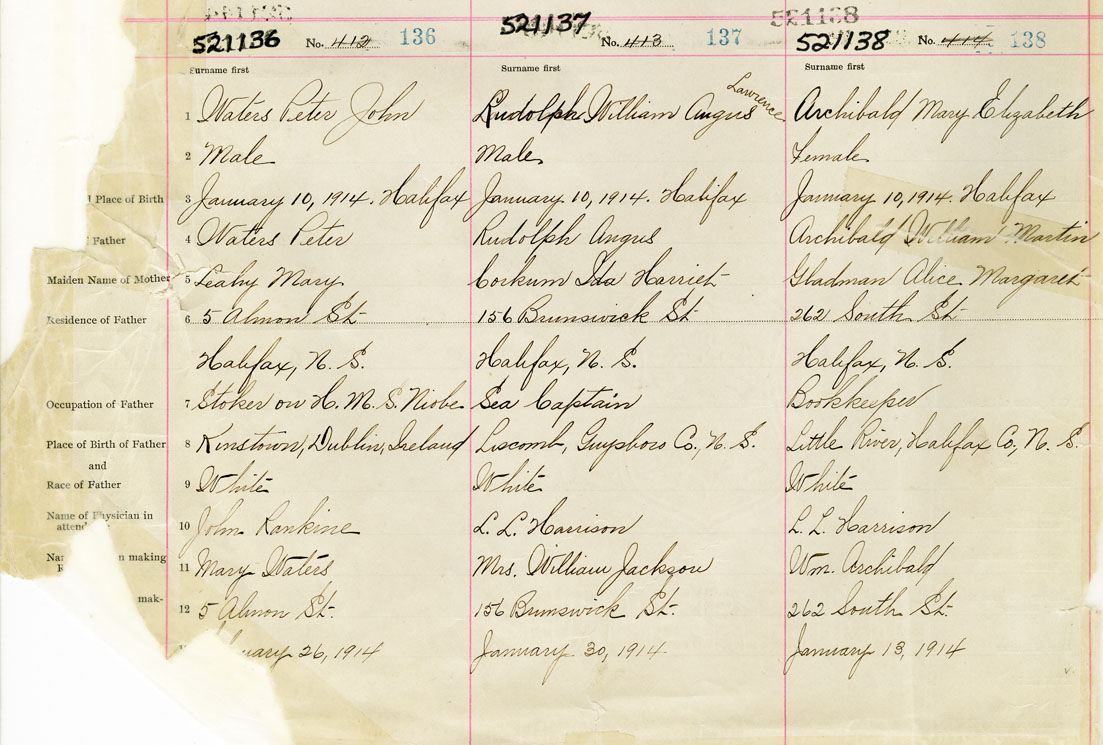 521136 No. 412 136 521137 No. 413 137 521138 521138 No. 414 138
Surname first Surname first Surname first
Lawrence
1 Waters Peter John Rudolph William Angus Archibald Mary Elizabeth
2 Male Male Female
Place of Birth 3 January 10, 1914. Halifax January 10, 1914. Halifax January 10, 1914. Halifax
Father 4 Waters Peter Rudolph Angus Archibald William Martin
Maiden Name of Mother 5 Leahy Mary Corkum Ida Harriet Gladman Alice Margaret
Residence of Father 6 5 Almon St 156 Brunswick St 262 South St
Halifax, N. S. Halifax, N. S. Halifax, N. S.
Occupation of Father 7 Stoker on H. M. S. Niobe Sea Captain Bookkeeper
Place of Birth of Father 8 Kinstown, Dublin, Ireland Liscomb, Guysboro Co., N. S. Little River, Halifax Co, N. S.
and
Race of Father 9 White White White
Name of Physician in
attend 10 John Rankine L. L. Harrison L. L. Harrison
making
11 Mary Waters Mrs. William Jackson Wm. Archibald
mak-
12 5 Almon St. 156 Brunswick St 262 South St.
uary 26, 1914 January 30, 1914 January 13, 1914